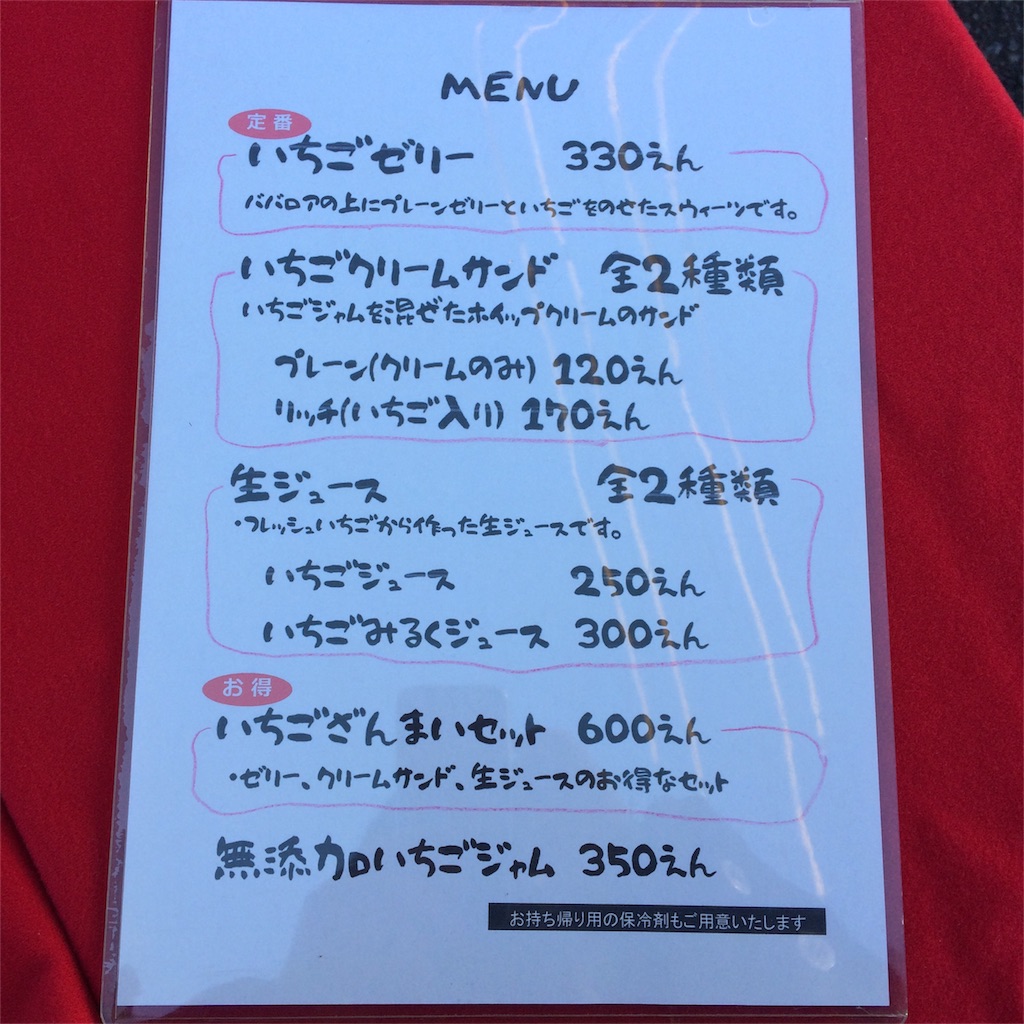 MENU
定番
いちごゼリー 330えん
ババロアの上にプレーンゼリーといちごをのせたスウィーツです。
いちごクリームサンド 全2種類
いちごジャムを混ぜたホイップクリームのサンド
プレーン(クリームのみ) 120えん
リッチ(いちご入り) 170えん
生ジュース 全2種類
・フレッシュいちごから作った生ジュースです。
いちごジュース 250えん
いちごみるくジュース 300えん
お得
いちござんまいセット 600えん
・ゼリー、クリームサンド、生ジュースのお得なセット
無添加いちごジャム 350えん
お持ち帰り用の保冷剤もご用意いたします